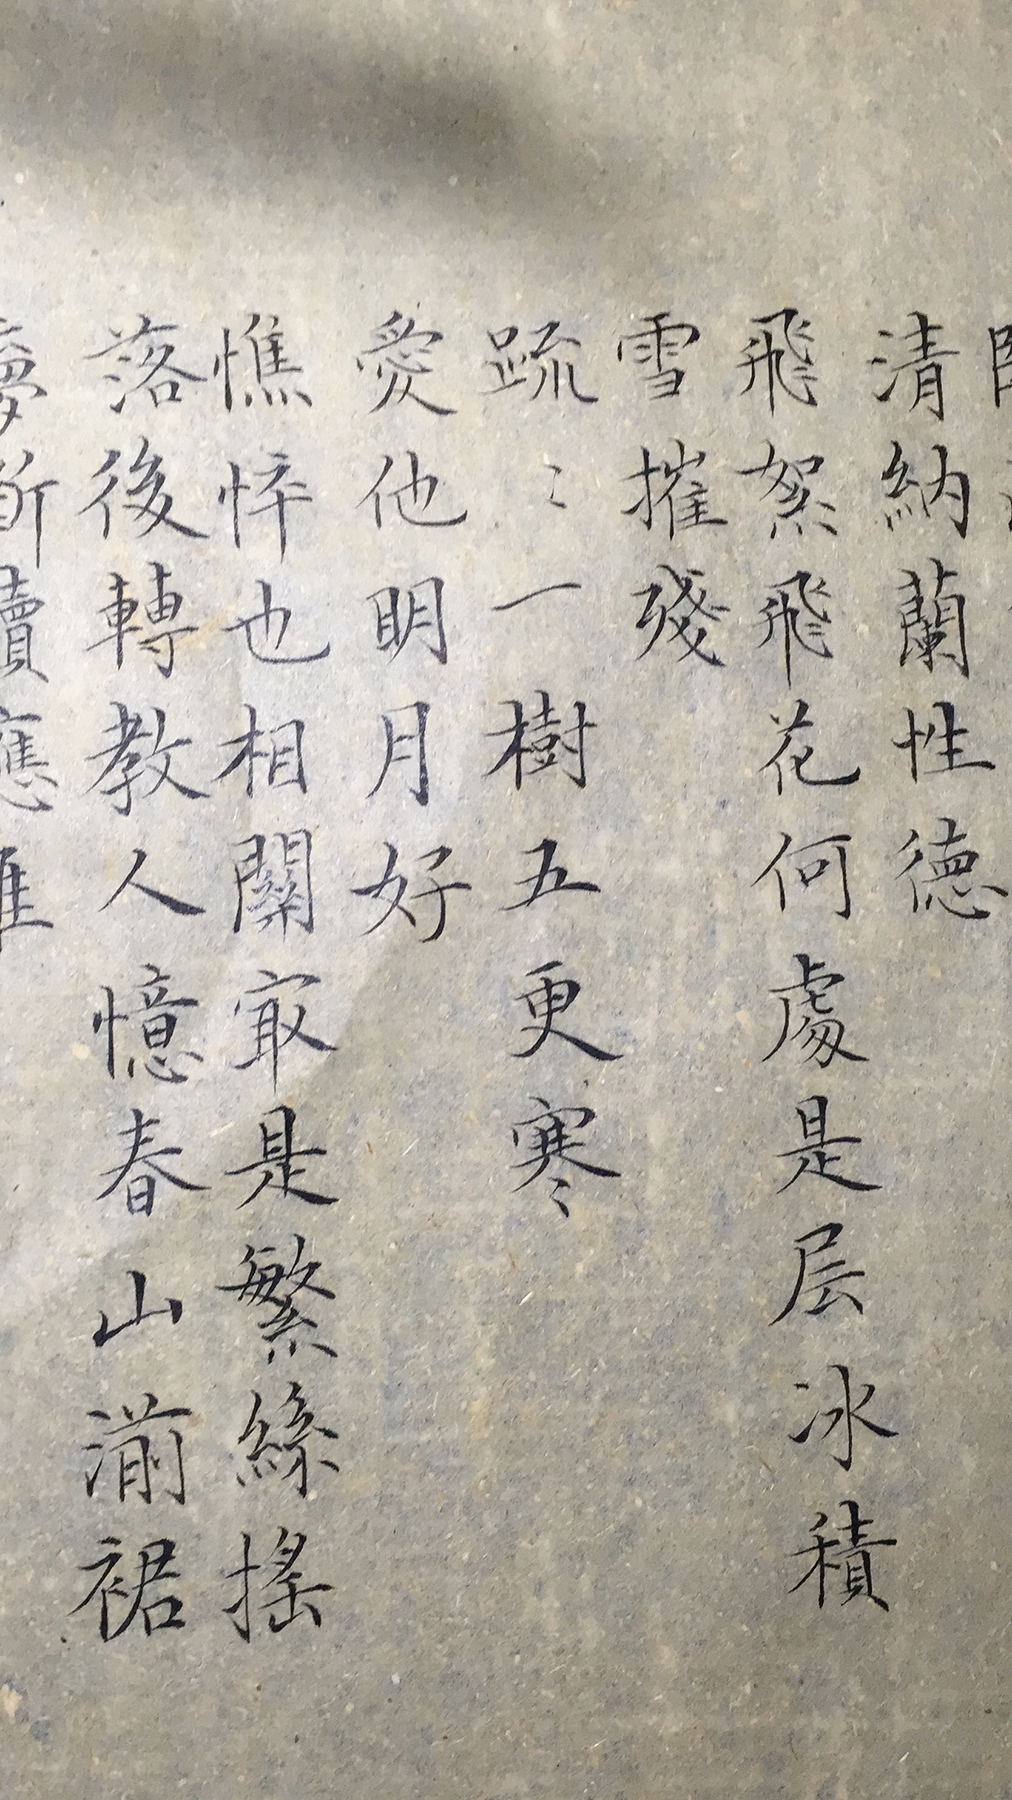 清納蘭性德
飛絮飛花何處是层冰積
雪摧殘
疏〻一樹五更寒〻
愛他明月好
憔悴也相關㝡是繁絲搖
落後轉教人憶春山湔裙
夢斷續應難